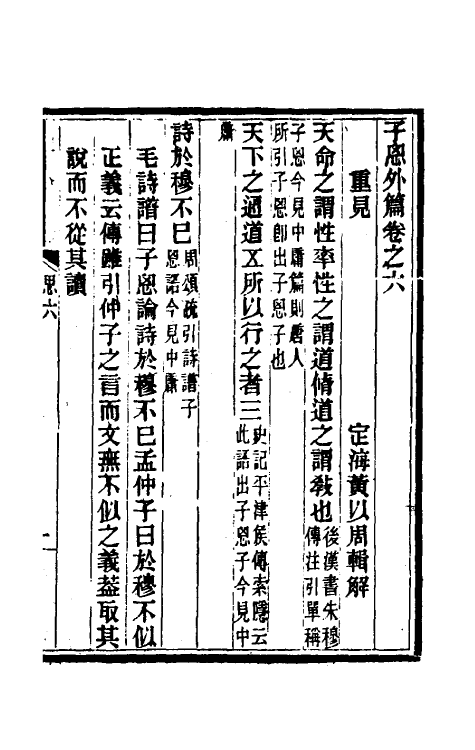 子思外篇卷之六
重見
定海黃以周輯解
天命之謂性率性之謂道脩道之謂敎也後漢書朱穆
傳注引單稱
子思今見中庸篇則唐人
所引子思卽出子思子也
天下之通道五所以行之者三史記平津侯傳索隱云
此語出子思子今見中
庸
詩於穆不已周頌疏引詩譜子
思語今見中庸
毛詩譜曰子思論詩於穆不已孟仲子曰於穆不似
正義云傳雖引仲子之言而文無不似之義葢取其
說而不從其讀
思六
一